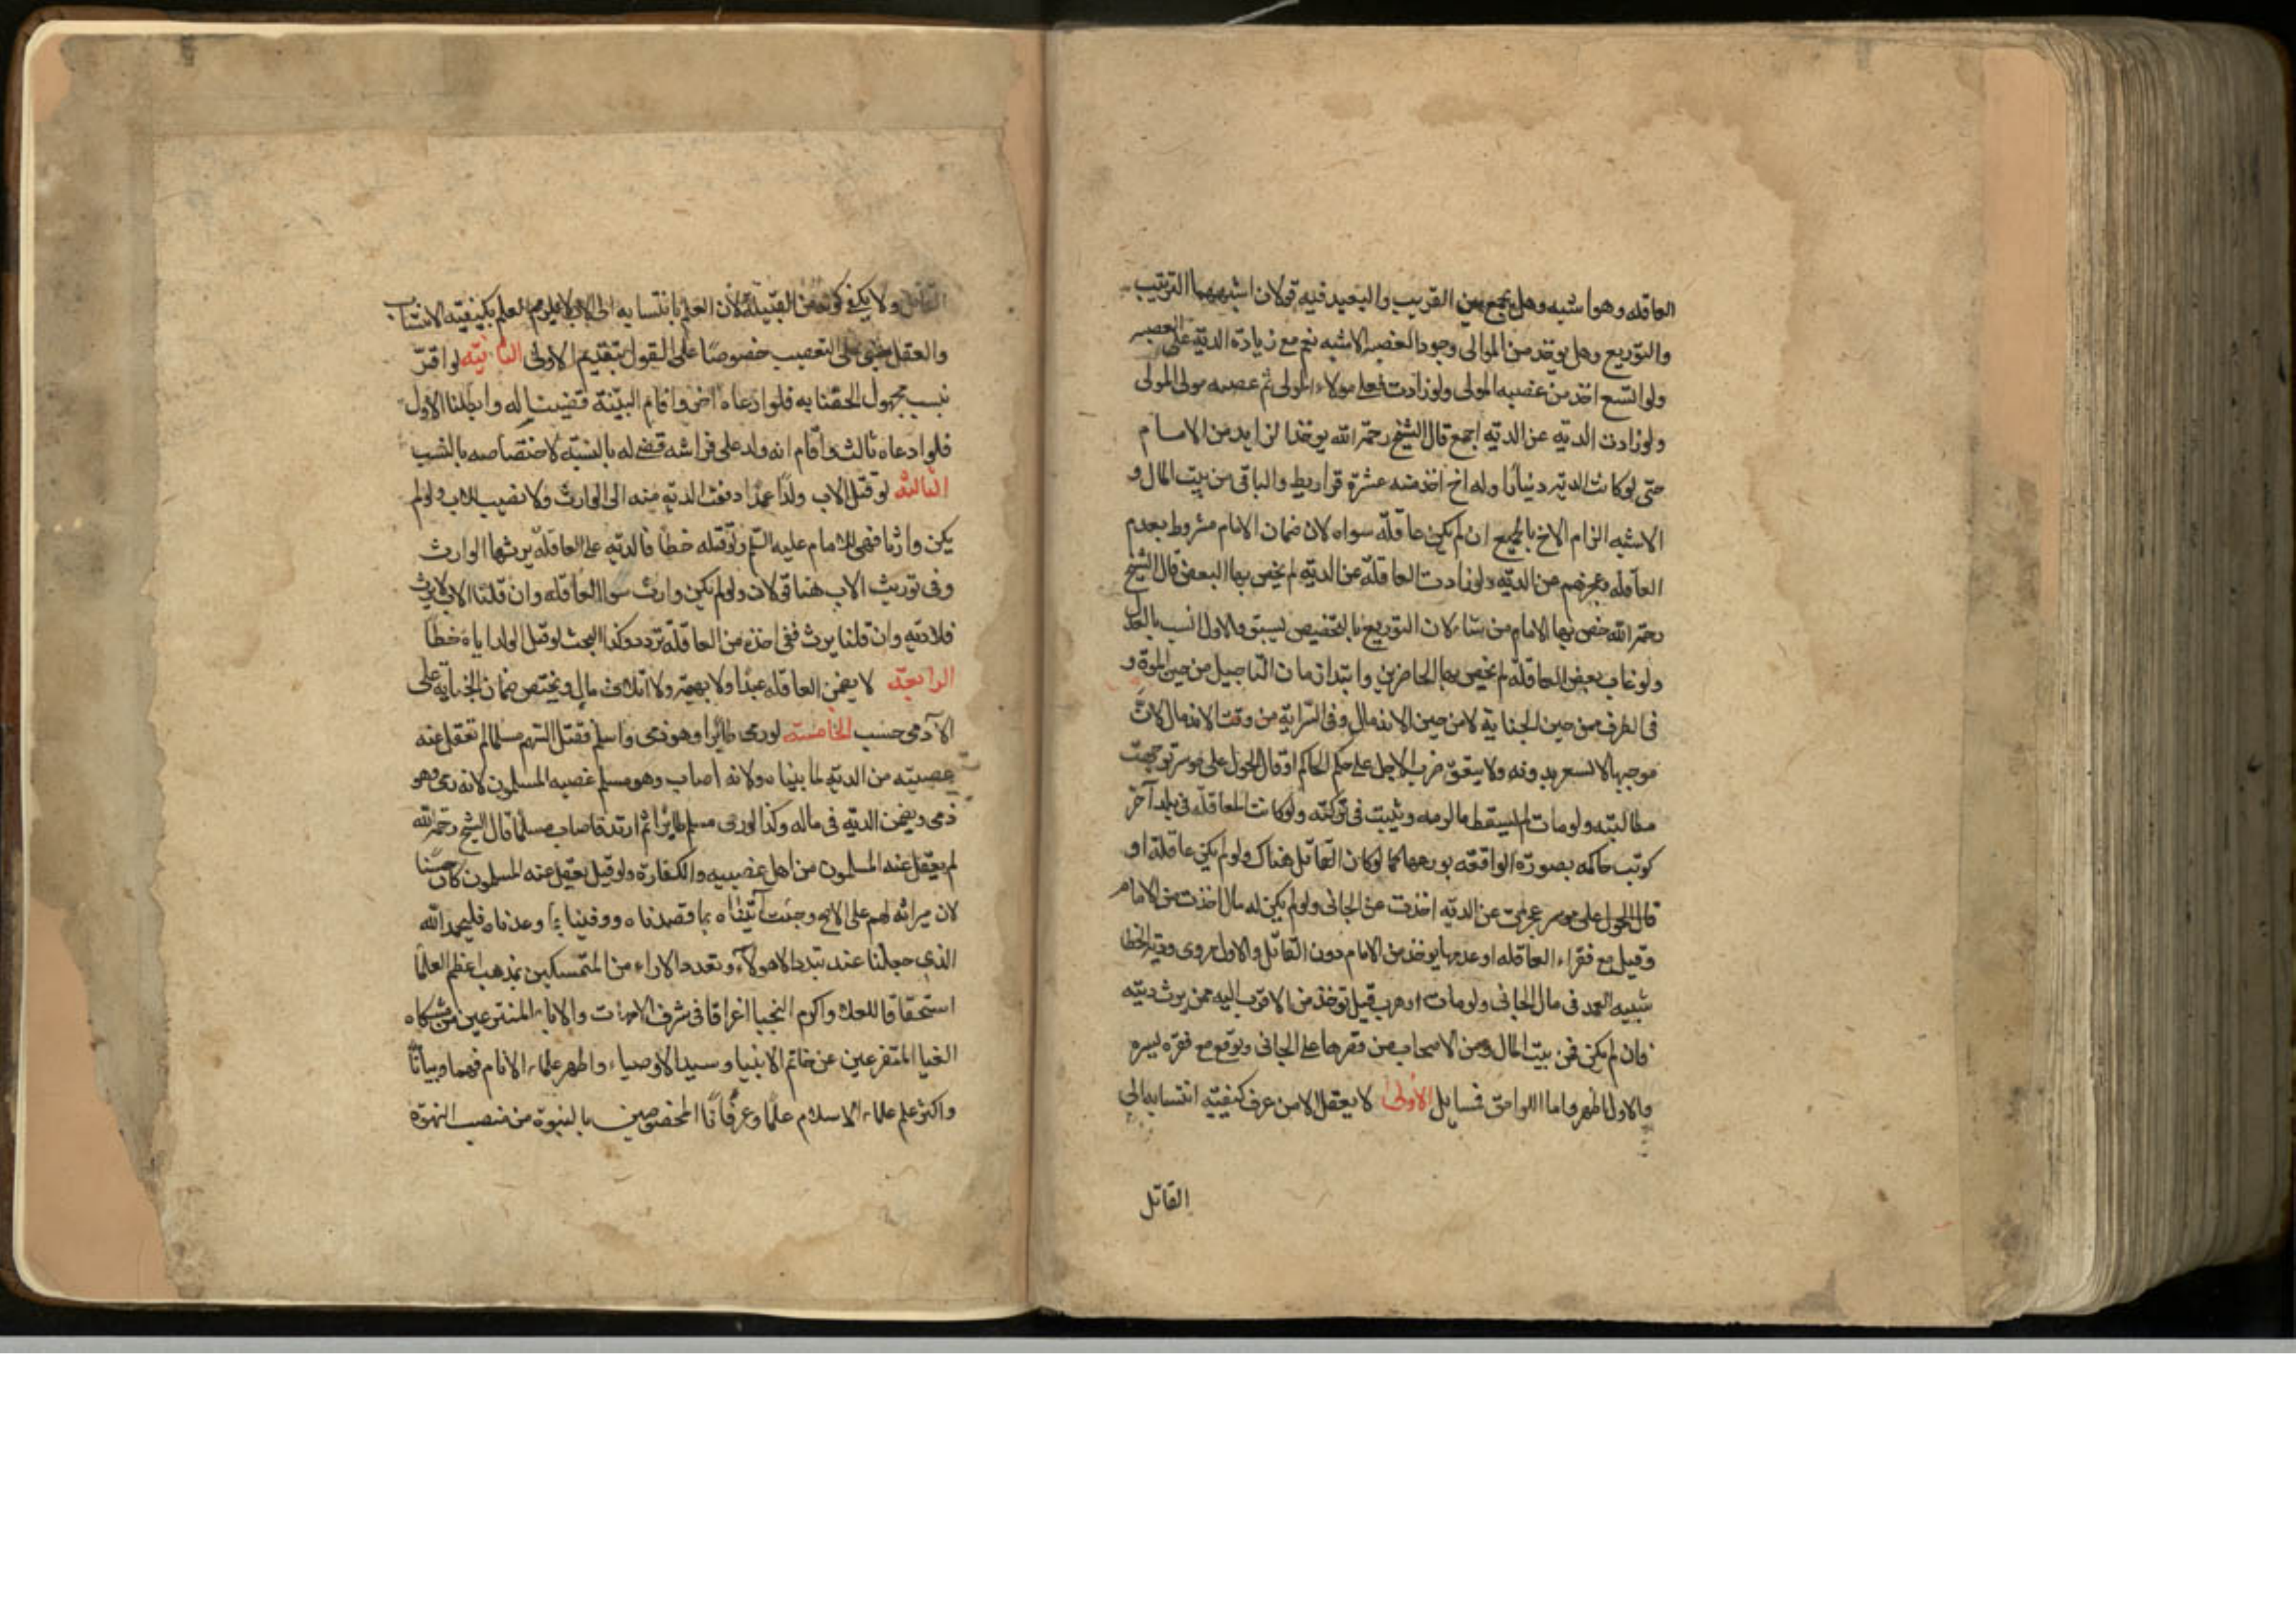 العاقله وهو اشبه وهل يجمع بين القريب والبعيد فيه قولان اشبههما الترتيب
والتوزيع وهل يوخذ من الموالى وجود العصبه الاشبه نعم مع زيادة الديه على العصبه
ولو اتسع اخذ من عصبه المولى ولو زادت فعلى مولاء المولى ثم عصبه مولى المولى
ولو زادت الديه عن الديه اجمع قال الشيخ رحمه الله يوخذ الزايد من الامام
حتى لو كانت الديه دينارا وله اخ اخذ منه عشرة قراريط والباقى من بيت المال و
الاشبه الزام الاخ بالجميع ان لم يكن عاقله سواه لان ضمان الامام مشروط بعدم
العاقله وعجزهم عن الديه ولو زادت العاقله عن الديه لم يخص بها البعض قال الشيخ
رحمه الله خص بها الامام من شاء لان التوزيع بالتخصيص يشق والاول انسب بالعدل
ولو غاب بعض العاقله لم يخص بها الحاضرين وابتدا زمان التاجيل من حين الموة و
فى الطرف من حين الجنايه لا من حين الاندمال وفى السرايه من وقت الاندمال لان
موجبها لا يستقر بدونه ولا يتوقف ضرب الاجل على حكم الحاكم اذ حال الحول على موسر توجهت
مطالبته ولو مات لم يسقط ما لزمه ويثبت فى تركته ولو كانت العاقله فى بلد آخر
كوتب حاكمه بصورة الواقعه يوزعها كما لو كان القاتل هناك ولو لم يكن عاقله او
حال الحول على موسر عجزت عن الديه اخذت من الجانى ولو لم يكن له مال اخذت من الامام
وقيل مع فقراء العاقله او عدمها يوخذ من الامام دون القاتل والاول مروى وديه الخطا
شبيه العمد فى مال الجانى ولو مات او هرب قيل توخذ من الاقرب اليه ممن يرث ديته
فان لم يكن فمن بيت المال ومن الاصحاب من قصرها على الجانى ويوقع مع فقره يسره
والاول اظهر واما اللواحق فمسايل الاولى لا يعقل الا من عرف كيفيه انتسابه الى
القاتل
القاتل ولا يكفى كونه من القبيله لان العلم بانتسابه الى الاب لا يلزم العلم بكيفيه الانتساب
والعقل مبنى على التعصيب خصوصا على القول بتقديم الاولى الثانيه لو اقر
نسب مجهول الحقنا به فلو ادعاه اخر واقام البينة قضينا له وابطلنا الاول
فلو ادعاه ثالث واقام انه ولد على فراشه قضى له بالنسبه لاختصاصه بالسبب
الثالثه لو قتل الاب ولدا عمدا دفعت الديه منه الى الوارث ولا نصيب للاب ولو لم
يكن وارثا فهى للامام عليه السلم ولو قتله خطا فالديه على العاقله يرثها الوارث
وفى توريث الاب هنا قولان ولو لم يكن وارث سوى العاقله وان قلنا الاب لا يرث
فلا ديه وان قلنا يرث ففى اخذه من العاقله تردد وكذا البحث لو قتل الولد اباه خطا
الرابعه لا يضمن العاقله عبدا ولا بهيمه ولا اتلاف مال ويختص ضمان الجنايه على
الآدمى حسب الخامسة لو رمى طائرا وهو ذمى واسلم فقتل السهم مسلما لم تعقل عنه
عصبته من الديه لما بيناه ولانه اصاب وهو مسلم عصبه المسلمون لانه رمى وهو
ذمى ويضمن الديه فى ماله وكذا لو رمى مسلم طايرا ثم ارتد فاصاب مسلما قال الشيخ رحمه الله
لم يعقل عنه المسلمون من اهل عصبيه والكفارة ولو قيل يعقل عنه المسلمون كان حسنا
لان ميراثه لهم على الاصح وجئت اتيناه بما قصدناه ووفينا بما وعدناه فليحمد الله
الذى جعلنا عند تبدد الاهواء وتعدد الاراء من المتمسكين بمذهب اعظم العلماء
استحقاقا للعلاء واكرم النجبا اغراقا فى شرف الامهات والاباء المنتزعين من مشكاه
الضيا المتفرعين عن خاتم الانبيا وسيد الاوصياء واطهر علماء الانام فهما وبيانا
واكثر علم علماء الاسلام علما وعرفانا المخصوصين بالنبوة من منصب النبوة